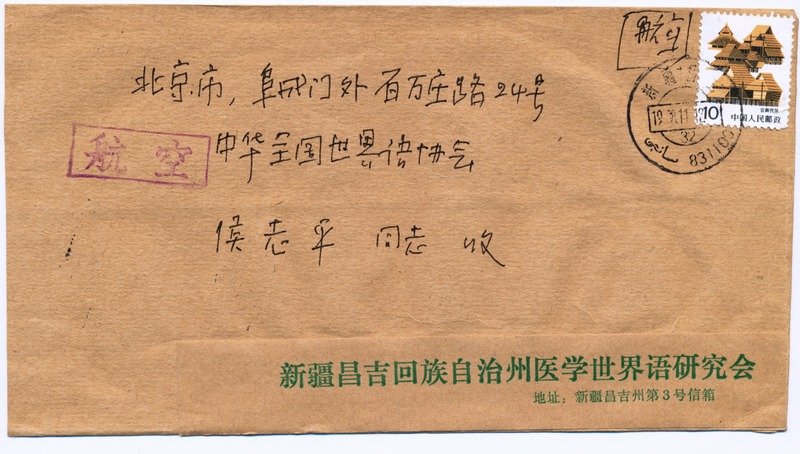 航空
10
中国人民邮政
831100
北京市，阜成门外百万庄路24号
中华全国世界语协会
航空
侯志平 同志 收
新疆昌吉回族自治州医学世界语研究会
地址：新疆昌吉州第3号信箱